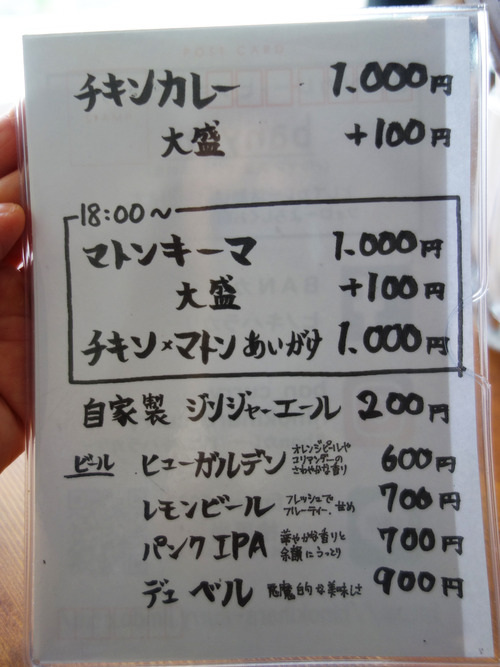 チキンカレー 1.000円
大盛 +100円
18:00~
マトンキーマ 1.000円
大盛 +100円
チキン×マトン あいがけ 1.000円
自家製 ジンジャーエール 200円
ビール ヒューガルデン オレンジピールや コリアンダーの さわやかな香り 600円
レモンビール フレッシュで フルーティー、甘め 700円
パンクIPA 華やかな香りと 余韻にうっとり 700円
デュベル 悪魔的な美味しさ 900円